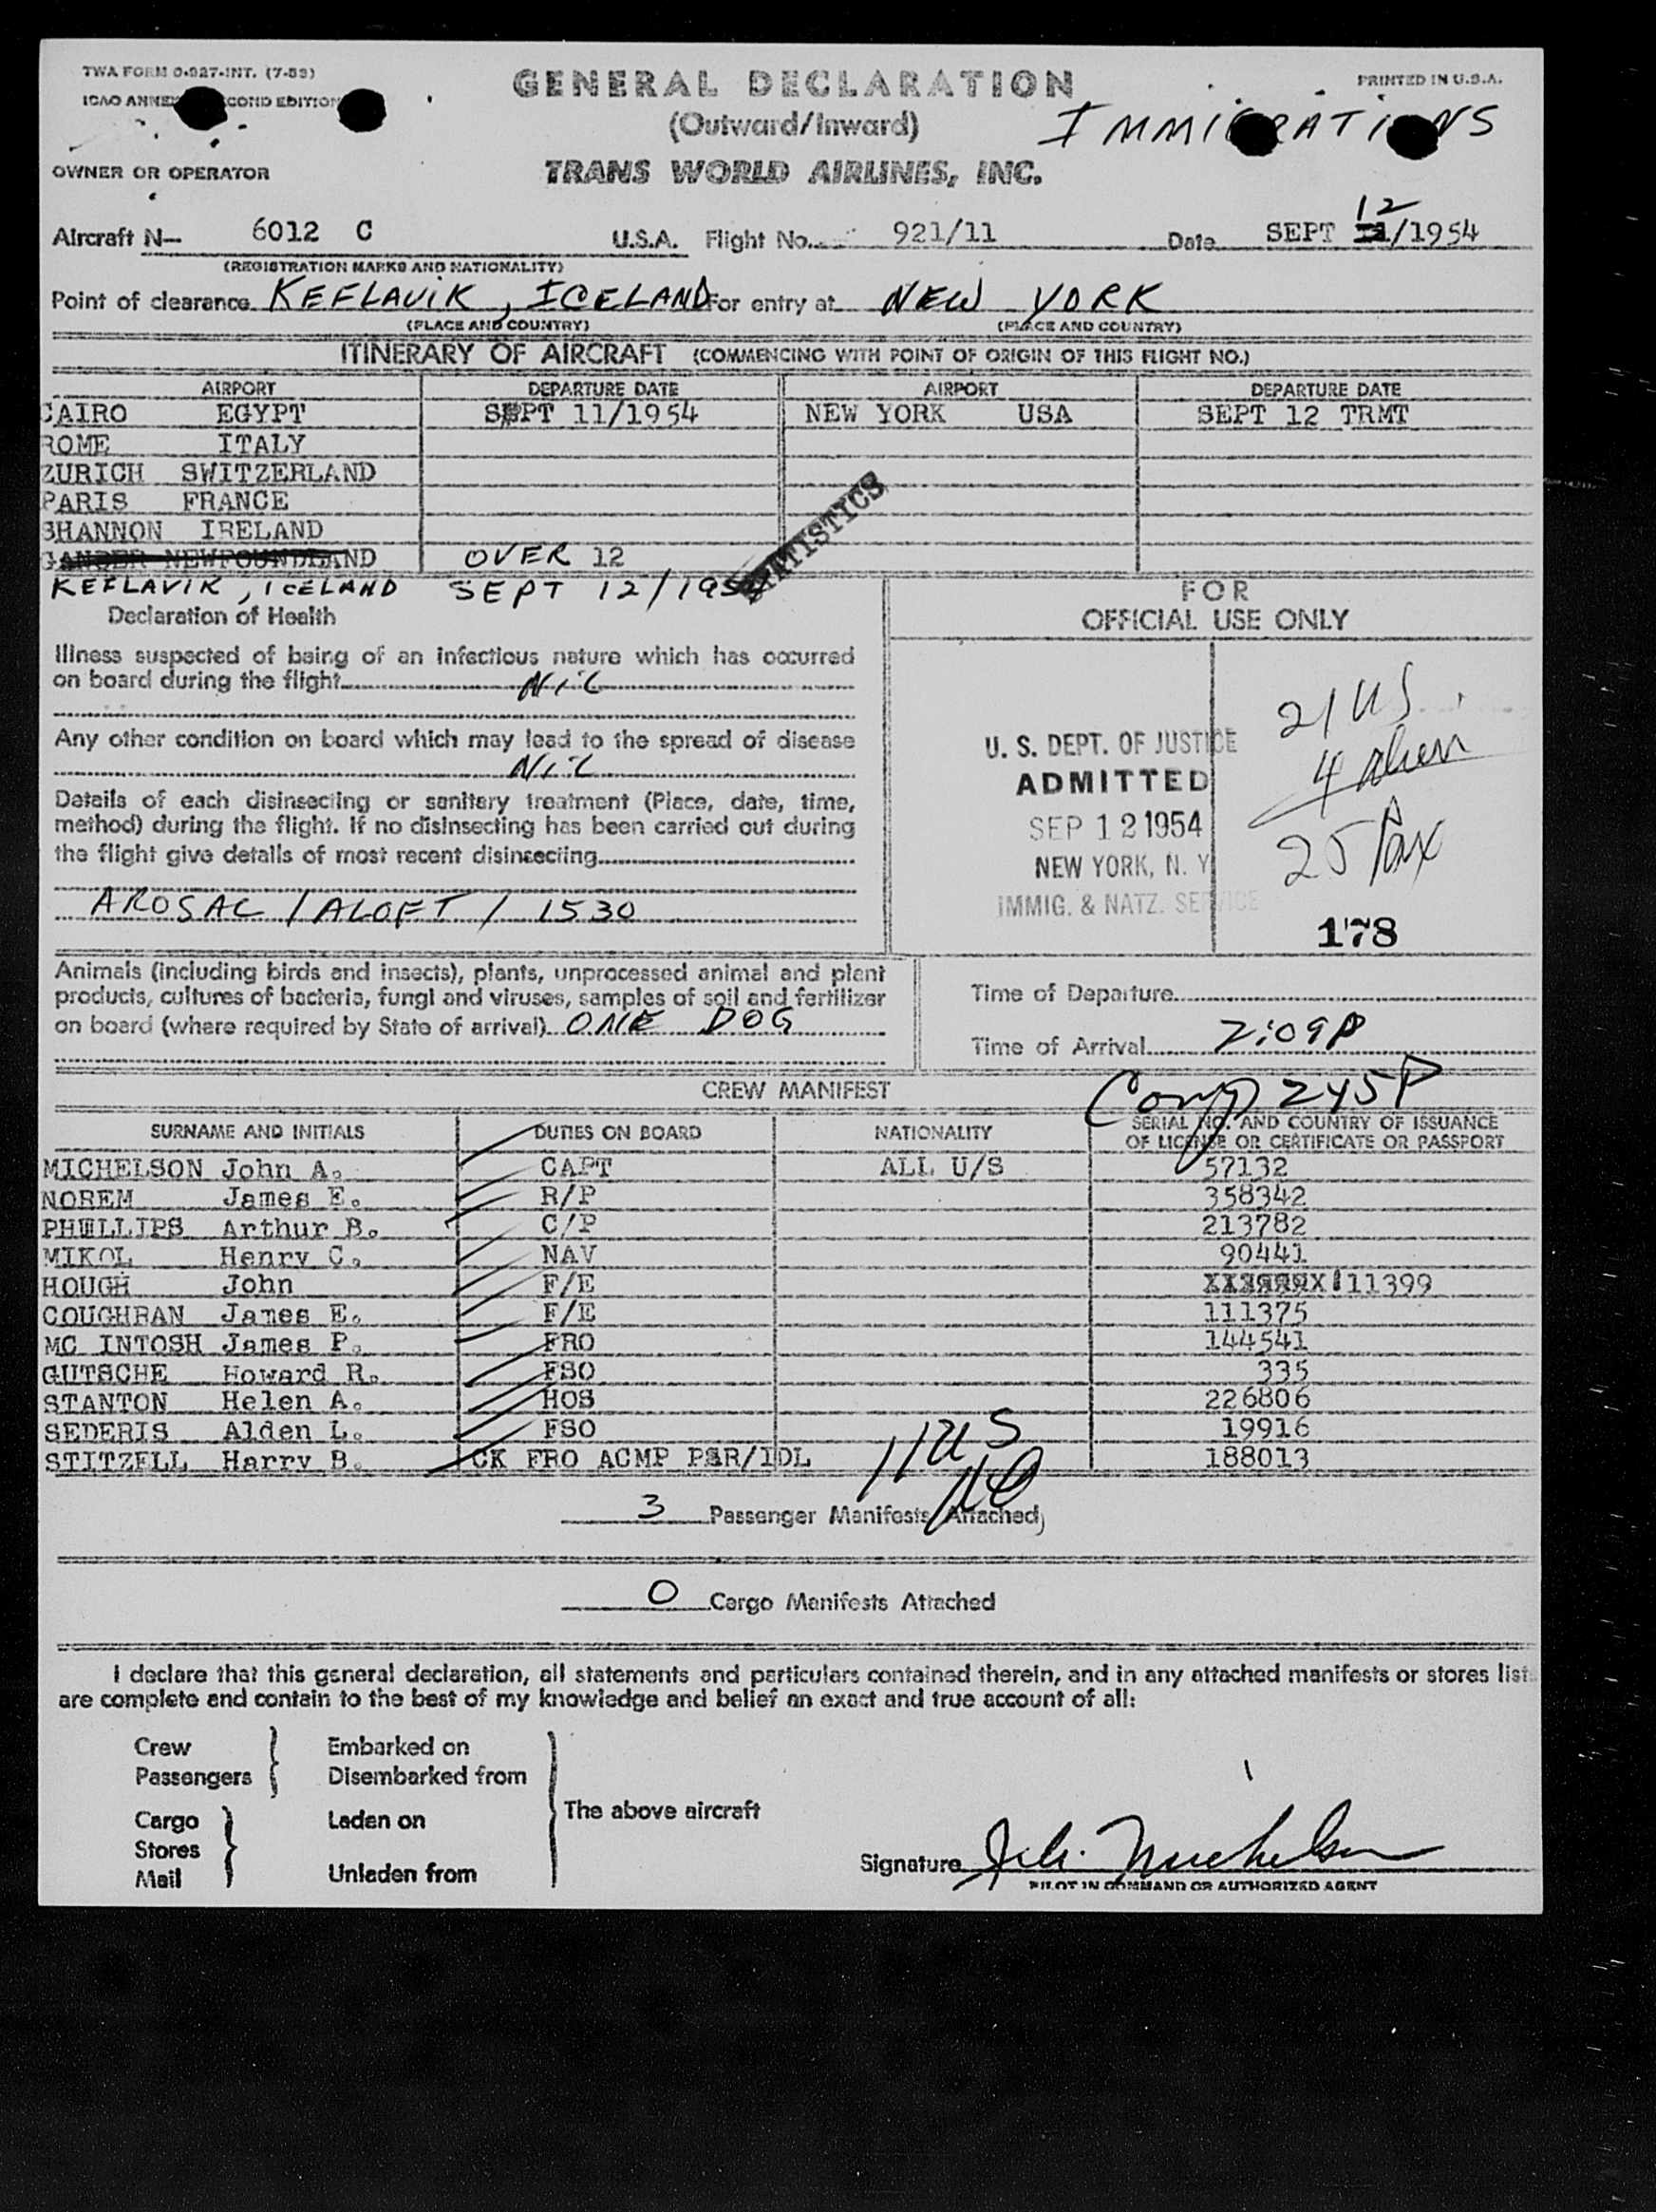 TWA FORM O-927-INT. (7-53)
GENERAL DECLARATION
PRINTED IN U.S.A.
ICAO ANNEX SECOND EDITION
(Outward/Inward)
IMMIGRATIONS
OWNER OR OPERATOR
TRANS WORLD AIRLINES, INC.
12
Aircraft N— 6012 C U.S.A. Flight No. 921/11 Date SEPT 11/1954
(REGISTRATION MARKS AND NATIONALITY)
Point of clearance KEFLAVIK, ICELAND For entry at NEW YORK
(PLACE AND COUNTRY) (PLACE AND COUNTRY)
ITINERARY OF AIRCRAFT (COMMENCING WITH POINT OF ORIGIN OF THIS FLIGHT NO.)
AIRPORT DEPARTURE DATE AIRPORT DEPARTURE DATE
CAIRO EGYPT SEPT 11/1954 NEW YORK USA SEPT 12 TRMT
ROME ITALY
ZURICH SWITZERLAND
PARIS FRANCE
SHANNON IRELAND
GANDER NEWFOUNDLAND OVER 12
STATISTICS
KEFLAVIK, ICELAND SEPT 12/1954
FOR
OFFICIAL USE ONLY
Declaration of Health
Illness suspected of being of an infectious nature which has occurred
on board during the flight Nil
Any other condition on board which may lead to the spread of disease
Nil
Details of each disinsecting or sanitary treatment (Place, date, time,
method) during the flight. If no disinsecting has been carried out during
the flight give details of most recent disinsecting
AROSAC / ALOFT / 1530
U. S. DEPT. OF JUSTICE
ADMITTED
SEP 12 1954
NEW YORK, N. Y.
IMMIG. & NATZ. SERVICE
21 US
4 alien
25 Pax
178
Animals (including birds and insects), plants, unprocessed animal and plant
products, cultures of bacteria, fungi and viruses, samples of soil and fertilizer
on board (where required by State of arrival) ONE DOG
Time of Departure
Time of Arrival 2:09P
Comp 245P
CREW MANIFEST
SURNAME AND INITIALS DUTIES ON BOARD NATIONALITY SERIAL NO. AND COUNTRY OF ISSUANCE
OF LICENSE OR CERTIFICATE OR PASSPORT
MICHELSON John A. CAPT ALL U/S 57132
NOREM James E. R/P 358342
PHILLIPS Arthur B. C/P 213782
MIKOL Henry C. NAV 90441
HOUGH John F/E 11399
COUGHRAN James E. F/E 111375
MC INTOSH James P. FRO 144541
GUTSCHE Howard R. FSO 335
STANTON Helen A. HOS 226806
SEDERIS Alden L. FSO 19916
STITZELL Harry B. CK FRO ACMP PSR/IDL 188013
11 US
3 Passenger Manifests Attached
0 Cargo Manifests Attached
I declare that this general declaration, all statements and particulars contained therein, and in any attached manifests or stores list
are complete and contain to the best of my knowledge and belief an exact and true account of all:
Crew Embarked on
Passengers Disembarked from
The above aircraft
Cargo Laden on
Stores
Mail Unladen from
Signature J.A. Michelson
PILOT IN COMMAND OR AUTHORIZED AGENT